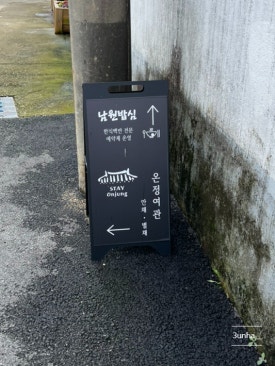 남원밥심
한식백반 전문
예약제 운영
STAY
Onjung
온정여관
안채 · 별채
3unha